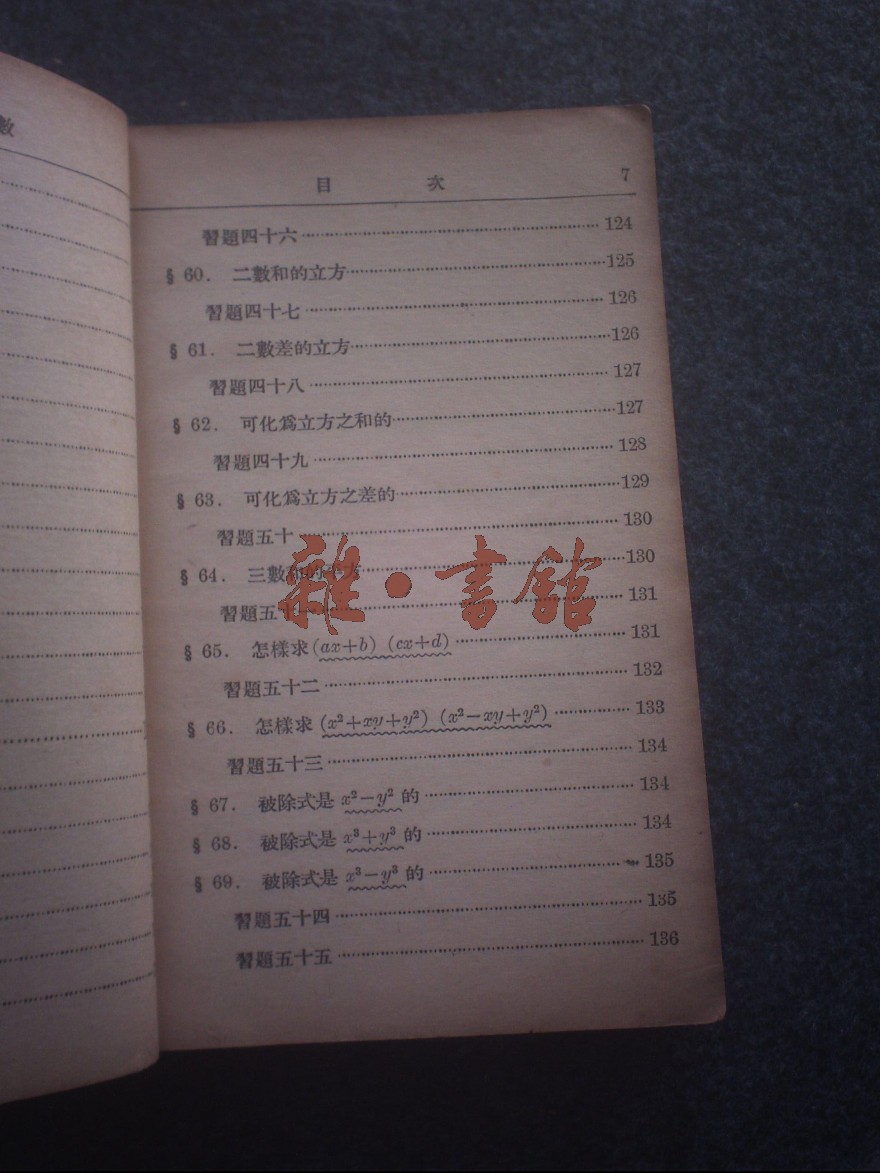 數
目 次 7
習題四十六 124
§ 60. 二數和的立方 125
習題四十七 126
§ 61. 二數差的立方 126
習題四十八 127
§ 62. 可化爲立方之和的 127
習題四十九 128
§ 63. 可化爲立方之差的 129
習題五十 130
§ 64. 三數和的平方 130
習題五十一 131
§ 65. 怎樣求(ax+b) (cx+d) 131
習題五十二 132
§ 66. 怎樣求 (x²+xy+y²) (x²−xy+y²) 133
習題五十三 134
§ 67. 被除式是 x²−y² 的 134
§ 68. 被除式是 x³+y³ 的 134
§ 69. 被除式是 x³−y³ 的 135
習題五十四 135
習題五十五 136
雜·書館